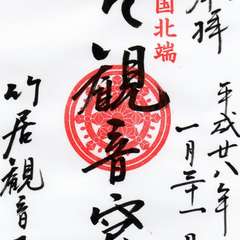 拝
平成廿八年
一月三十一日
国北端
観音窟
竹居観音